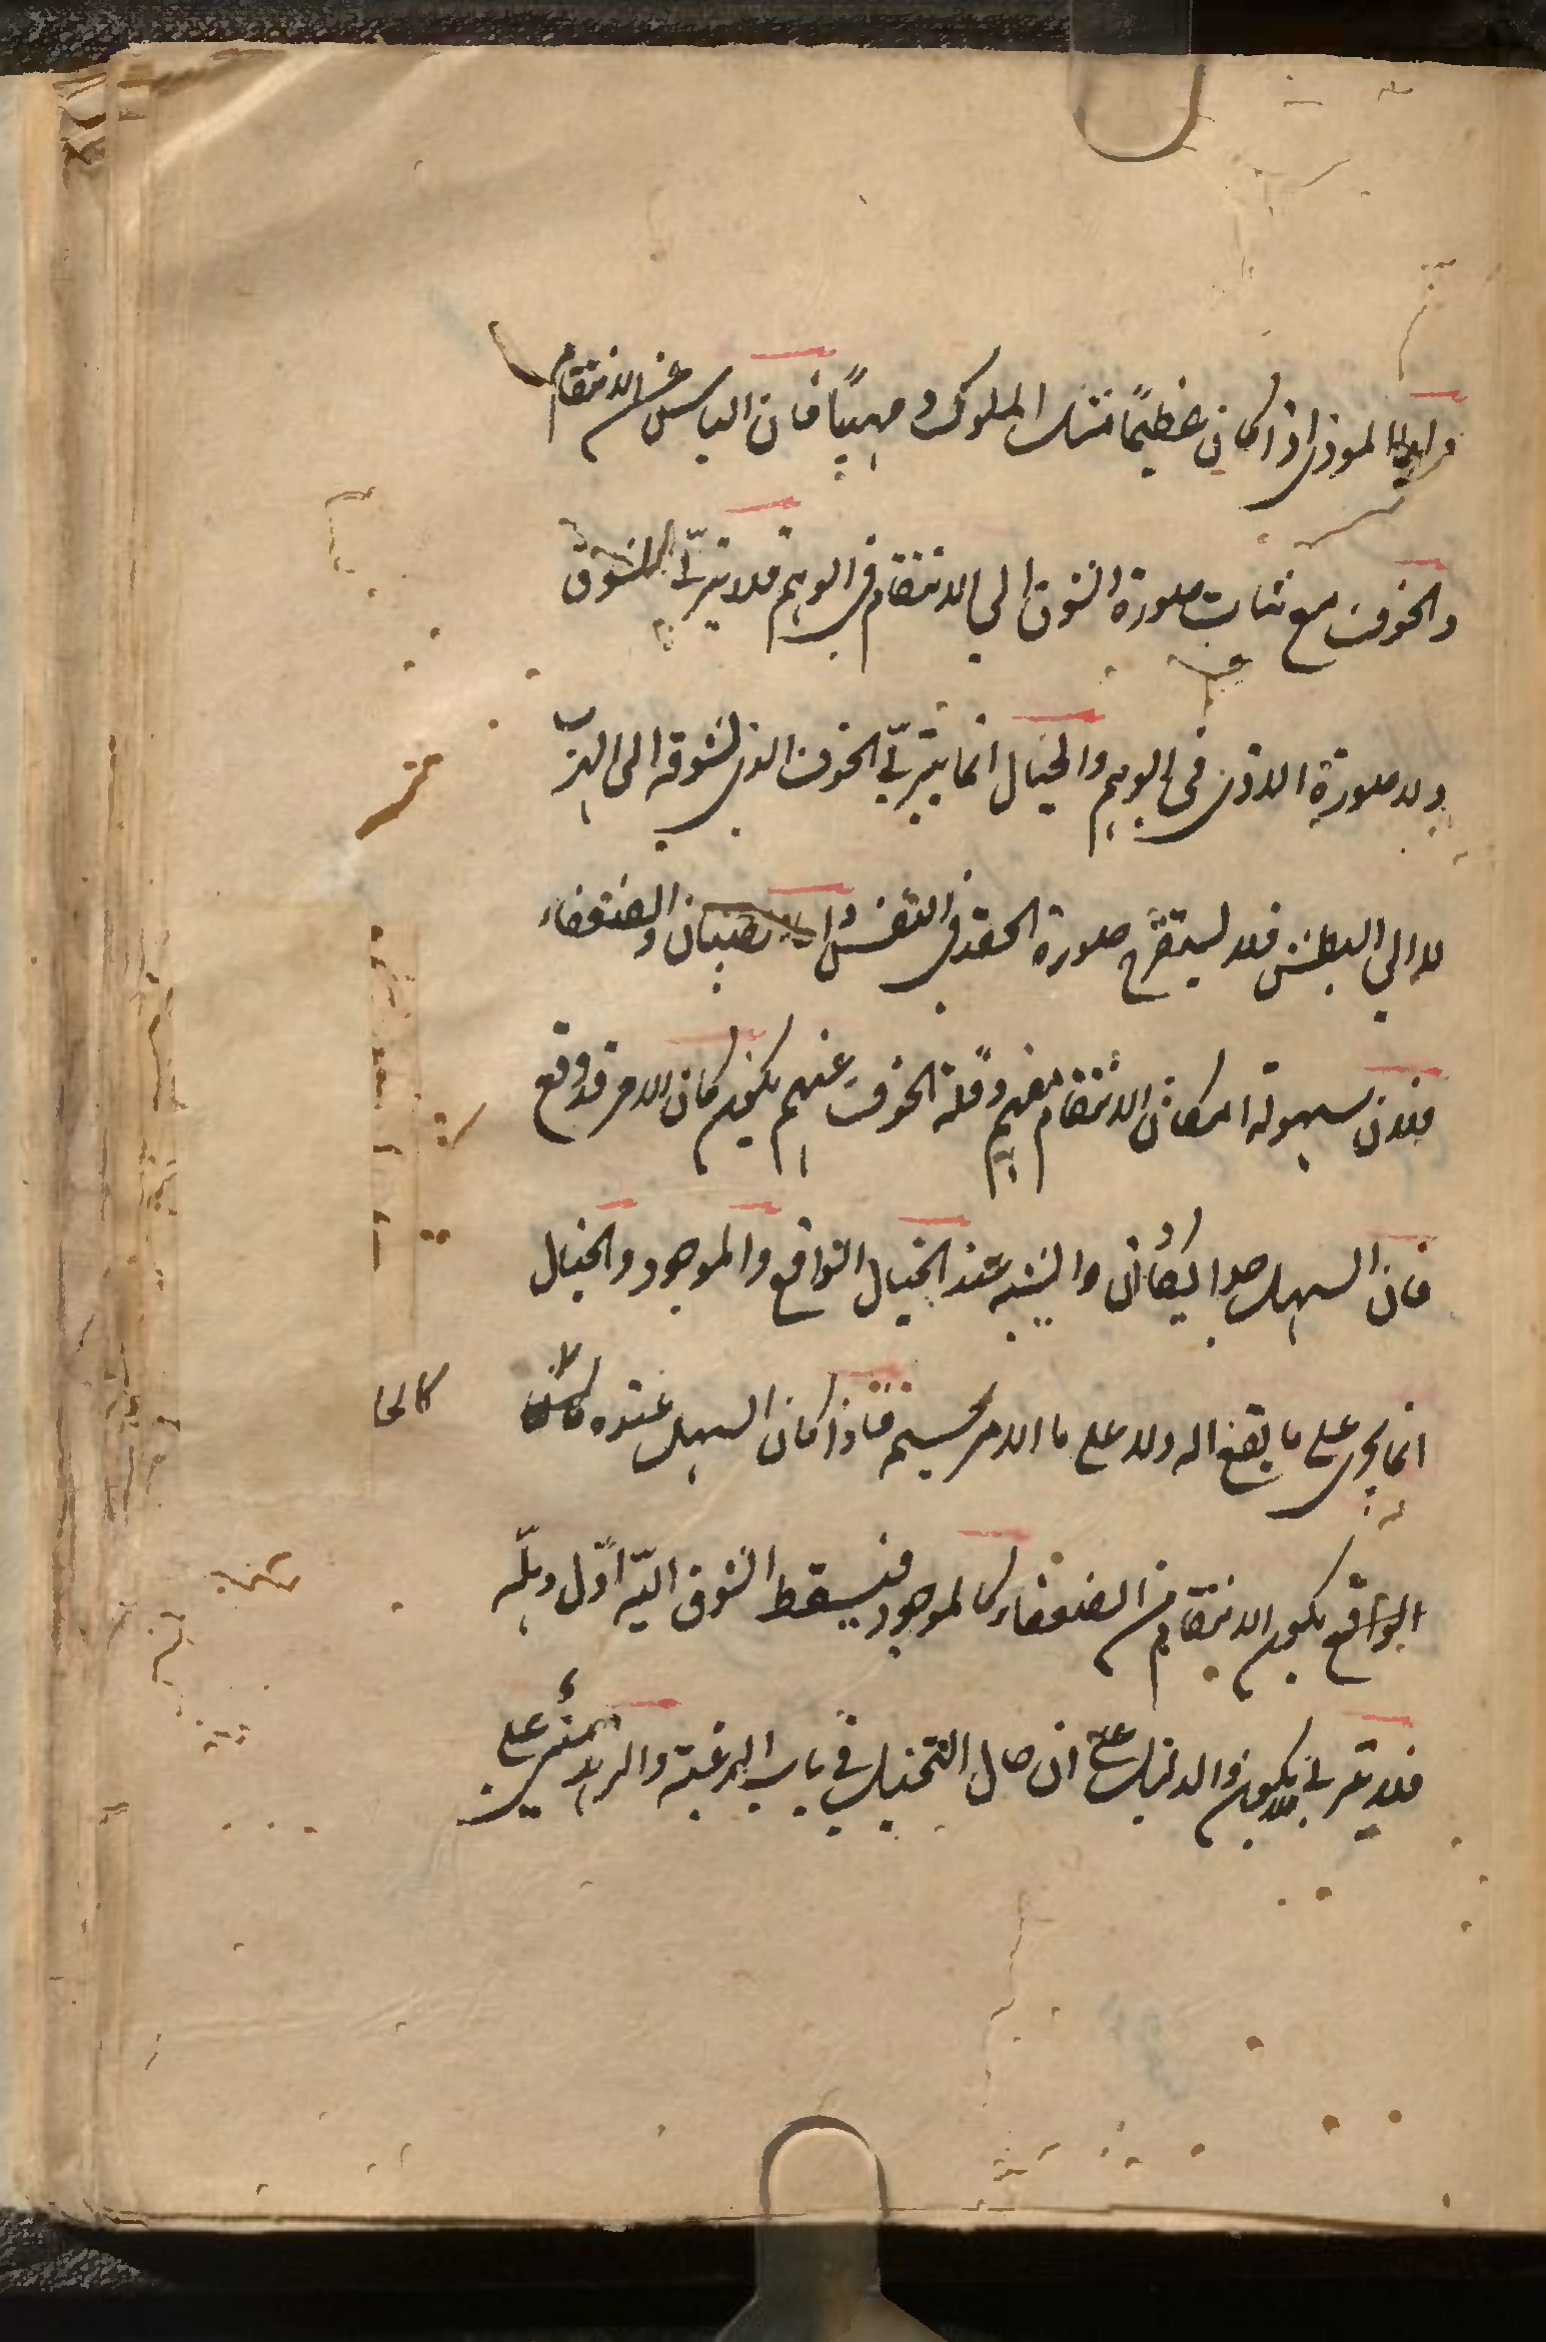 المؤذى اذا كان عظيمًا مثل الملوك ومهيبًا فان الياس عن الانتقام
والخوف مع ثبات صورة الشوق الى الانتقام فى الوهم فلا يتربّى الشوق
ولا صورة الاذى فى الوهم والخيال انما يتربّى الخوف الذى لشوقه الى الهرب
لا الى البطش فلا يستقرّ صورة الحقد فى النفس واما الصبيان والضعفاء
فلان سهولة امكان الانتقام منهم وقلة الخوف عنهم يكون كان الامر قد وقع
فان السهل جدا كأن والشبيه عند الخيال الواقع والموجود والخيال
انما يجرى على ما يقع له ولا على ما الامر بحسبه فاذا كان السهل عنده كالحا
الواقع يكون الانتقام من الضعفاء كالموجود فيسقط الشوق اليه اوّل وهلة
فلا يتربى والدليل على ان حال التخييل فى باب الرغبة والرهبة على
كالحا